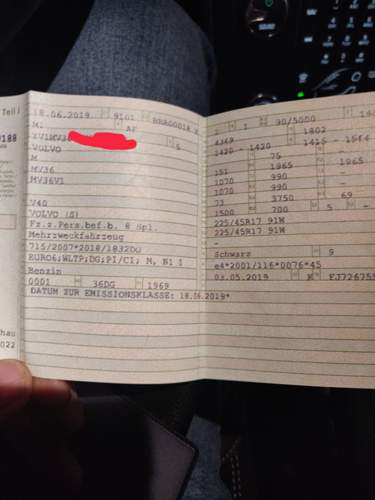 Teil I
18.06.2019 9101 BRA00018
M1 AF
YV1MV3 5
VOLVO
M
MV36
MV36V1
V40
VOLVO (S)
Fz.z.Pers.bef.b. 8 Spl.
Mehrzweckfahrzeug
715/2007*2018/1832DG
EURO6;WLTP;DG;PI/CI; M, N1 I
Benzin
0001 36DG 1969
DATUM ZUR EMISSIONSKLASSE: 18.06.2019*
2 1 90/5000
4369 1802
1420 - 1420 1415 -
75
151 1965 1965
1070 990 -
1070 990 -
73 3750 69
1500 700 5 -
225/45R17 91W
225/45R17 91W
-
Schwarz 9
e4*2001/116*0076*45
03.05.2019 K
022